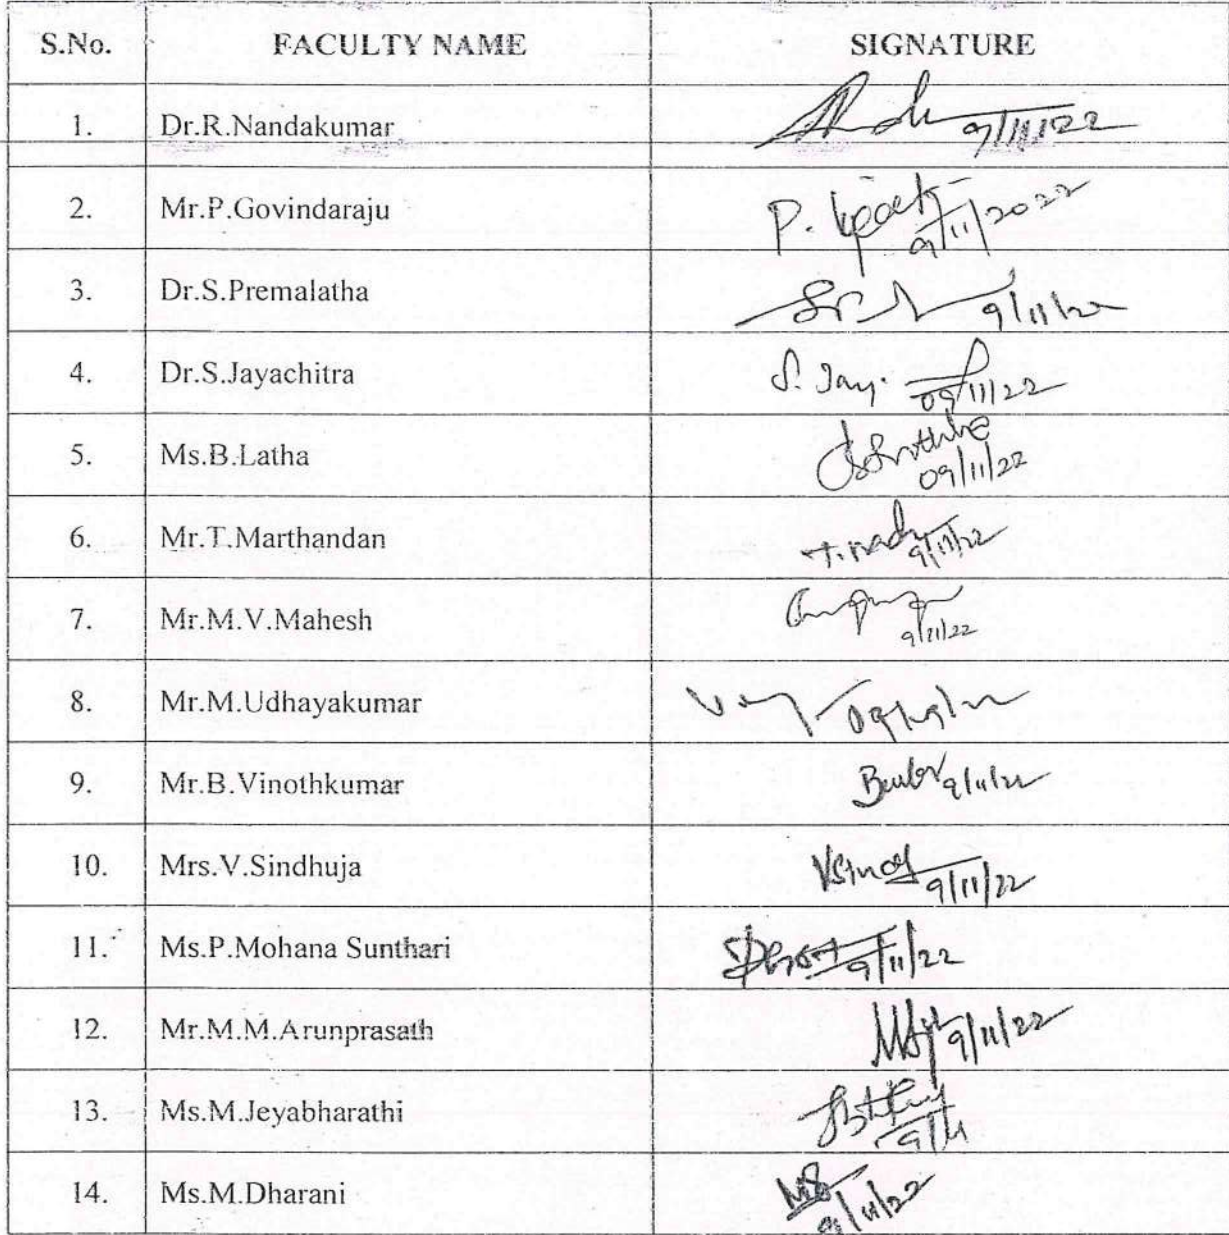 S.No. FACULTY NAME SIGNATURE
1. Dr.R.Nandakumar 9/11/22
2. Mr.P.Govindaraju P. 9/11/2022
3. Dr.S.Premalatha 9/11/22
4. Dr.S.Jayachitra S. Jay. 09/11/22
5. Ms.B.Latha 09/11/22
6. Mr.T.Marthandan 9/11/22
7. Mr.M.V.Mahesh 9/11/22
8. Mr.M.Udhayakumar
9. Mr.B.Vinothkumar 9/11/22
10. Mrs.V.Sindhuja 9/11/22
11. Ms.P.Mohana Sunthari 9/11/22
12. Mr.M.M.Arunprasath 9/11/22
13. Ms.M.Jeyabharathi 9/11
14. Ms.M.Dharani 9/11/22